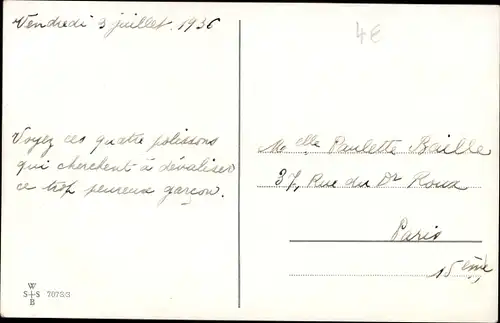 Vendredi 3 juillet. 1936
4€
Voyez ces quatre polissons
qui cherchent à dévaliser
ce trop peureux garçon.
Melle Paulette Baille
37, Rue du Dr Roux
Paris
15ème
W
S+S
B
7073/3